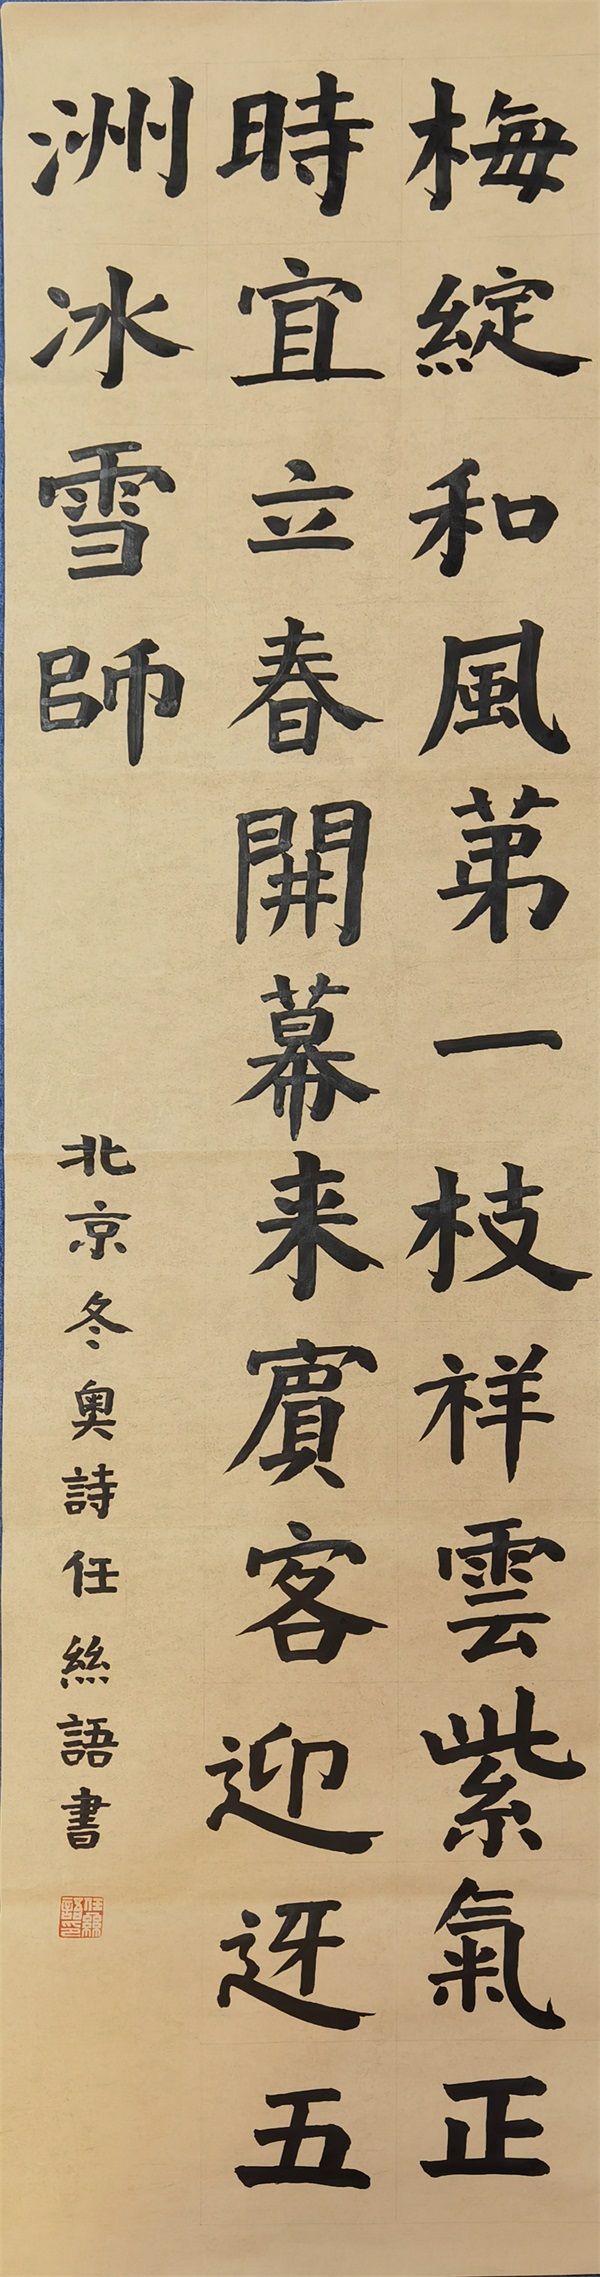 梅綻和風苐一枝祥雲紫氣正
時宜立春開幕来賓客迎迓五
洲冰雪師
北京冬奧詩任絲語書
任絲語印